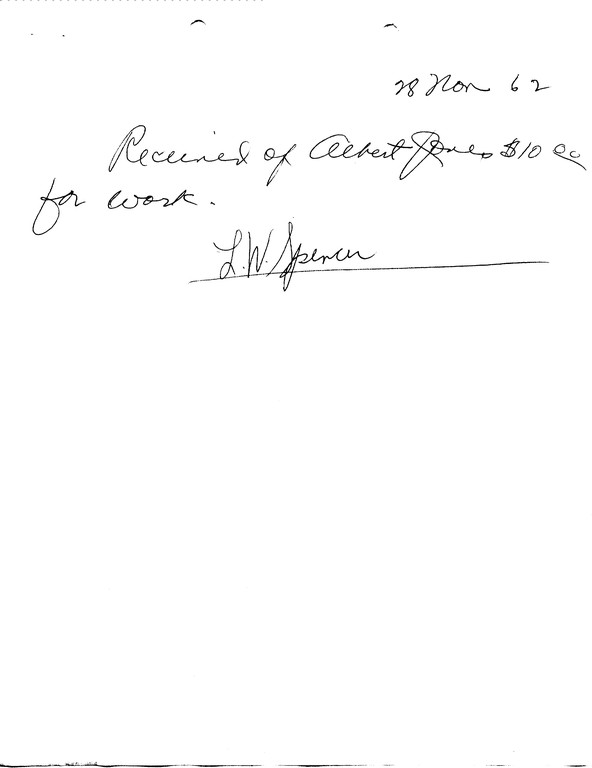 28 Nov 62
Received of Albert Jones $10 00
for work.
L.W. Spencer